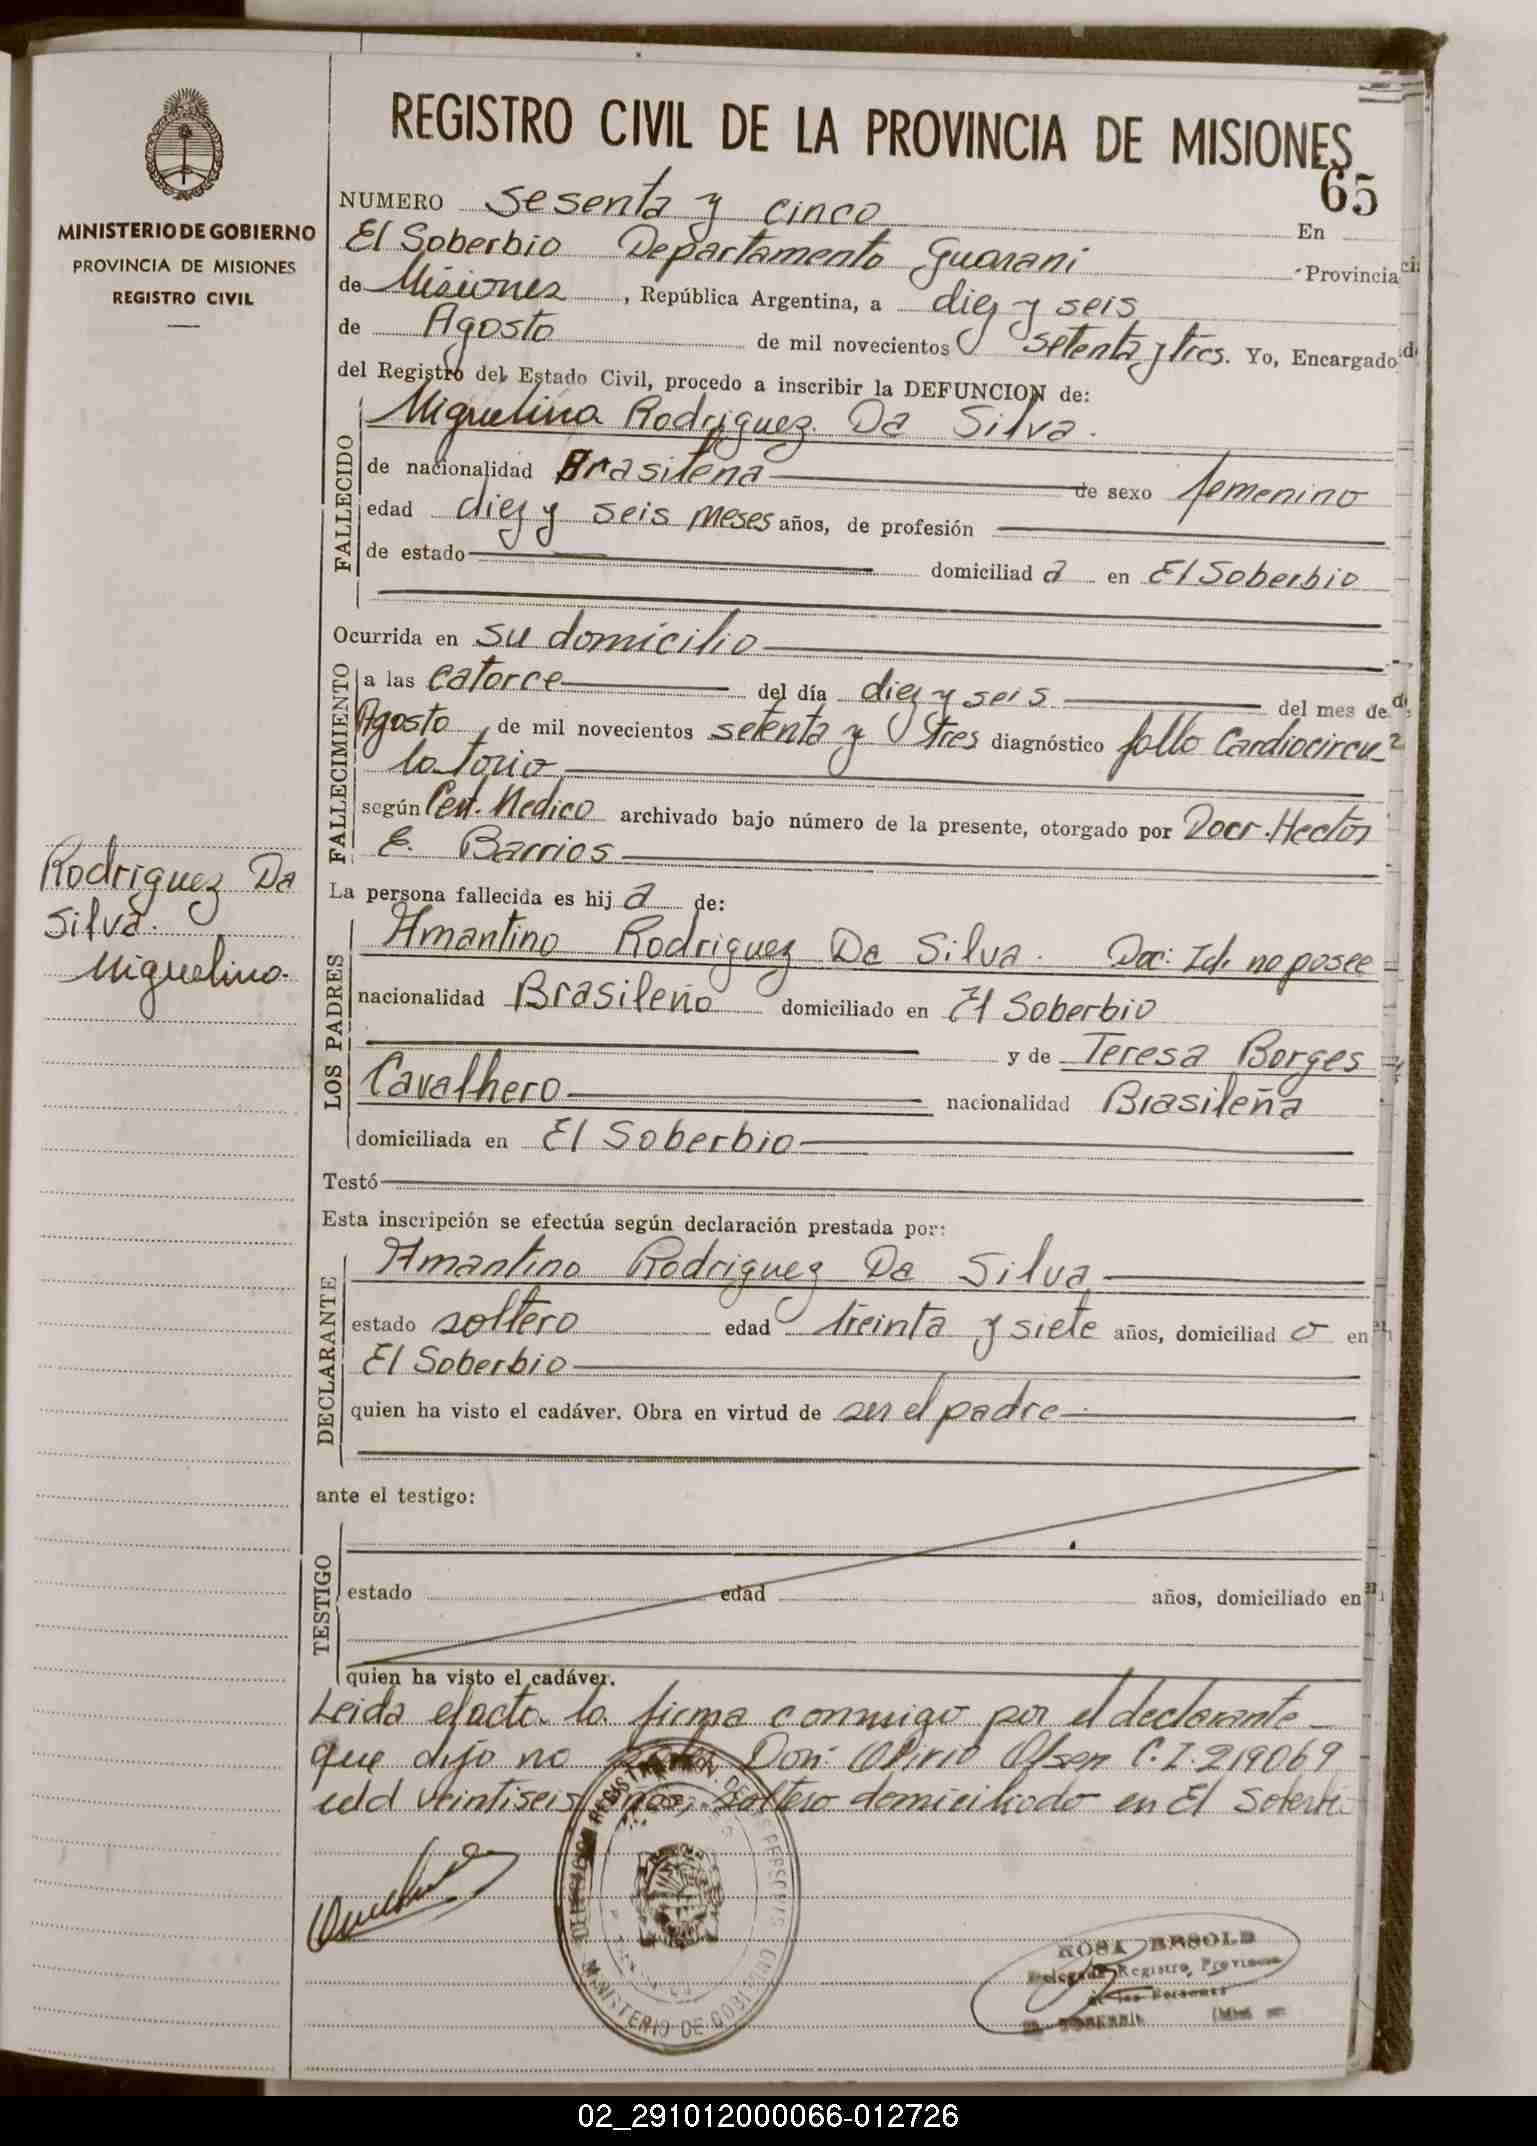 REGISTRO CIVIL DE LA PROVINCIA DE MISIONES
65
MINISTERIO DE GOBIERNO
PROVINCIA DE MISIONES
REGISTRO CIVIL
NUMERO sesenta y cinco En
El Soberbio Departamento Guarani Provincia
de Misiones, República Argentina, a diez y seis
de Agosto de mil novecientos setenta y tres. Yo, Encargado
del Registro del Estado Civil, procedo a inscribir la DEFUNCION de:
FALLECIDO
Miguelina Rodriguez Da Silva.
de nacionalidad Brasileña de sexo femenino
edad diez y seis meses años, de profesión
de estado domiciliad a en El Soberbio
Ocurrida en su domicilio
FALLECIMIENTO
a las catorce del día diez y seis del mes de
Agosto de mil novecientos setenta y tres diagnóstico fallo Cardiocircu
latorio
según Cert. Medico archivado bajo número de la presente, otorgado por Docr. Hector
E. Barrios
Rodriguez Da
Silva.
Miguelina.
La persona fallecida es hij a de:
LOS PADRES
Amantino Rodriguez Da Silva. Doc: Id. no posee
nacionalidad Brasileño domiciliado en El Soberbio
y de Teresa Borges
Cavalhero nacionalidad Brasileña
domiciliada en El Soberbio
Testó
Esta inscripción se efectúa según declaración prestada por:
DECLARANTE
Amantino Rodriguez Da Silva
estado soltero edad treinta y siete años, domiciliad o en
El Soberbio
quien ha visto el cadáver. Obra en virtud de ser el padre
ante el testigo:
TESTIGO
estado edad años, domiciliado en
quien ha visto el cadáver.
Leida el acta la firma conmigo por el declarante
que dijo no Don: Olirio Olsen C.I. 219069
edd veintiseis años, soltero domiciliado en El Soberbio
MINISTERIO DE GOBIERNO
ROSA BRSOLD
Delegada Registro Provincial
de las Personas
02_291012000066-012726